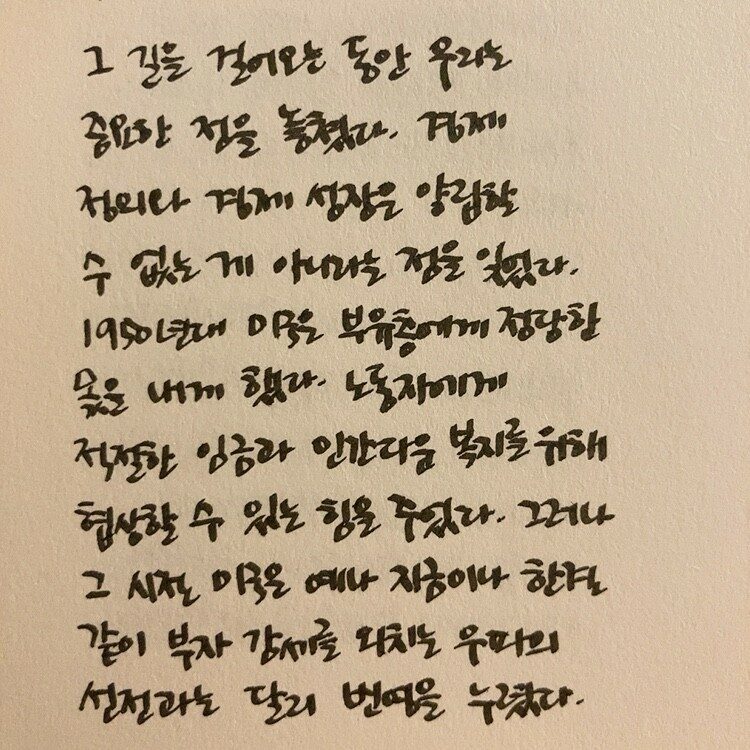 그 길을 걸어오는 동안 우리는
중요한 점을 놓쳤다. 경제
정의와 경제 성장은 양립할
수 없는 게 아니라는 점을 잊었다.
1950년대 미국은 부유층에게 정당한
몫을 내게 했다. 노동자에게
적절한 임금과 인간다움 복지를 위해
협상할 수 있는 힘을 주었다. 그러나
그 시절 미국은 예나 지금이나 한결
같이 부자 감세를 외치는 우파의
선전과는 달리 번영을 누렸다.